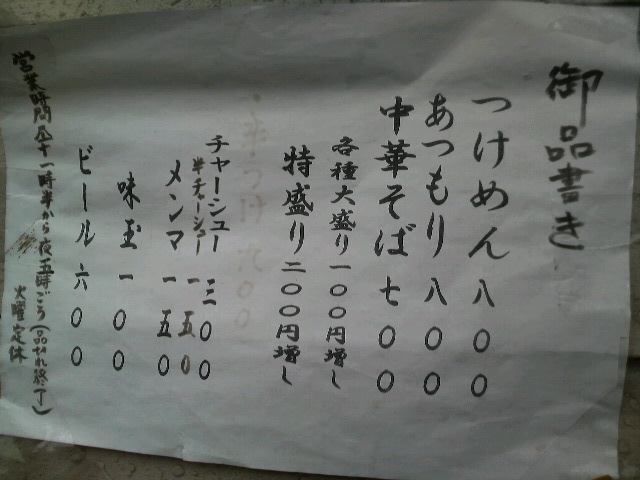 御品書き
つけめん 八〇〇
あつもり 八〇〇
中華そば 七〇〇
各種大盛り 一〇〇円増し
特盛り 二〇〇円増し
チャーシュー 三〇〇
半チャーシュー 一五〇
メンマ 一五〇
味玉 一〇〇
ビール 六〇〇
営業時間 十一時半から夜五時ごろ(品切れ終了)
火曜定休